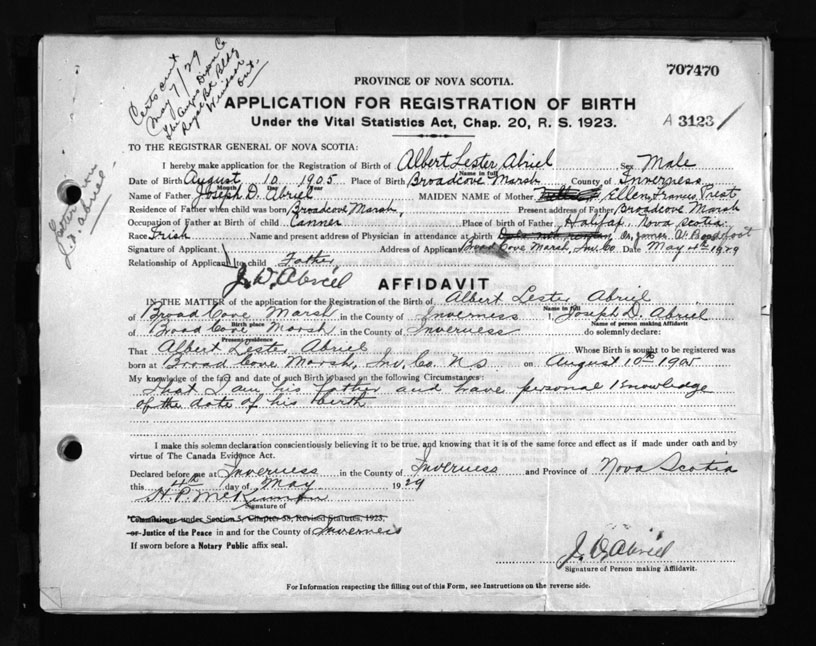 707470
PROVINCE OF NOVA SCOTIA.
Certs out
May 7/29
Royal Bk Bldg
Windsor
Ont.
APPLICATION FOR REGISTRATION OF BIRTH
A 3123
Under the Vital Statistics Act, Chap. 20, R. S. 1923.
TO THE REGISTRAR GENERAL OF NOVA SCOTIA:
J. D. Abriel
I hereby make application for the Registration of Birth of Albert Lester Abriel Sex Male
Name in full
Date of Birth August 10 1905 Place of Birth Broadcove Marsh County of Inverness
Month Day Year
Name of Father Joseph D. Abriel MAIDEN NAME of Mother Ellen Frances Prest
Residence of Father when child was born Broadcove Marsh, Present address of Father Broadcove Marsh
Occupation of Father at Birth of child Canner Place of birth of Father Halifax Nova Scotia
Race Irish Name and present address of Physician in attendance at birth Dr. James
Signature of Applicant Address of Applicant Broad Cove Marsh, Inv. Co. Date May 4th 1929
Relationship of Applicant to child Father,
J. D. Abriel
AFFIDAVIT
IN THE MATTER of the application for the Registration of the Birth of Albert Lester Abriel
Name in full
of Broad Cove Marsh in the County of Inverness I, Joseph D. Abriel
Birth place Name of person making Affidavit
of Broad Cove Marsh in the County of Inverness do solemnly declare:
Present residence
That Albert Lester Abriel Whose Birth is sought to be registered was
born at Broad Cove Marsh, Inv. Co. N S on August 10th 1905
My knowledge of the fact and date of such Birth is based on the following Circumstances:
That I am his father and have personal knowledge
of the date of his birth
I make this solemn declaration conscientiously believing it to be true, and knowing that it is of the same force and effect as if made under oath and by
virtue of The Canada Evidence Act.
Declared before me at Inverness in the County of Inverness and Province of Nova Scotia
this 4th day of May 1929
H. P. McKinnon
Signature of
Commissioner under Section 5, Chapter 38, Revised Statutes, 1923,
or Justice of the Peace in and for the County of Inverness
If sworn before a Notary Public affix seal.
J. D. Abriel
Signature of Person making Affidavit.
For Information respecting the filling out of this Form, see Instructions on the reverse side.